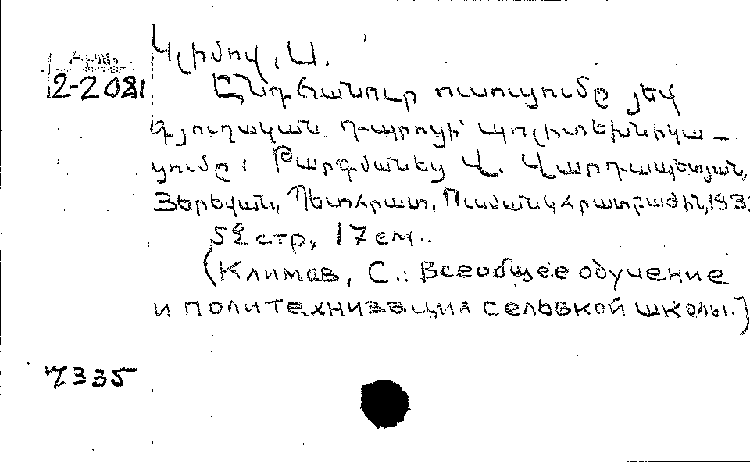 Կլիմով, Ս.
2-2081
Ընդհանուր ուսուցումը յեվ
գյուղական դպրոցի պոլիտեխնիկա-
ցումը: Թարգմանեց Վ. Վարդապետյան,
Յերեվան, Պետհրատ, Ուսմանկհրատբաժին, 193
52 стр, 17 см..
(Климов, С.: Всеобщее обучение
и политехнизация сельской школы.)
7335